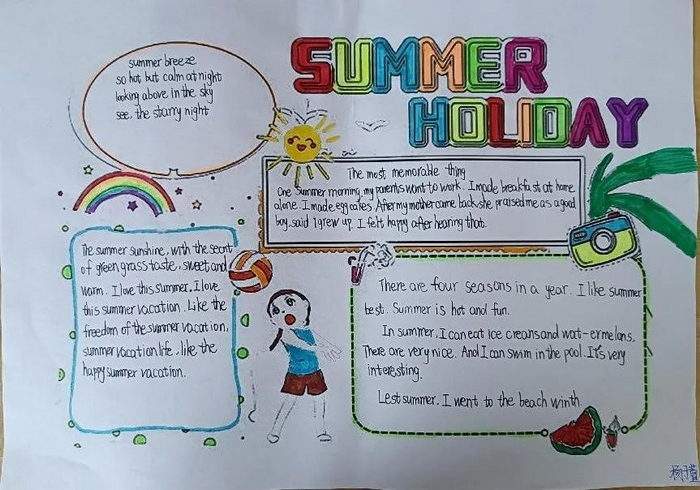 SUMMER
HOLIDAY
summer breeze
so hot but calm at night
looking above in the sky
see, the starry night
The most memorable thing
One summer morning, my parents want to work. I made breakfast at home
alone. I made egg cakes. After my mother came back, she praised me as a good
boy, said I grew up. I felt happy after hearing that.
The summer sunshine, with the secret
of green grass taste, sweet and
warm. I love this summer, I love
this summer vacation. Like the
freedom of the summer vacation,
summer vacation life, like the
happy summer vacation.
There are four seasons in a year. I like summer
best. Summer is hot and fun.
In summer, I can eat ice creams and wat-ermelons.
There are very nice. And I can swim in the pool. It's very
interesting.
Lest summer. I went to the beach winth